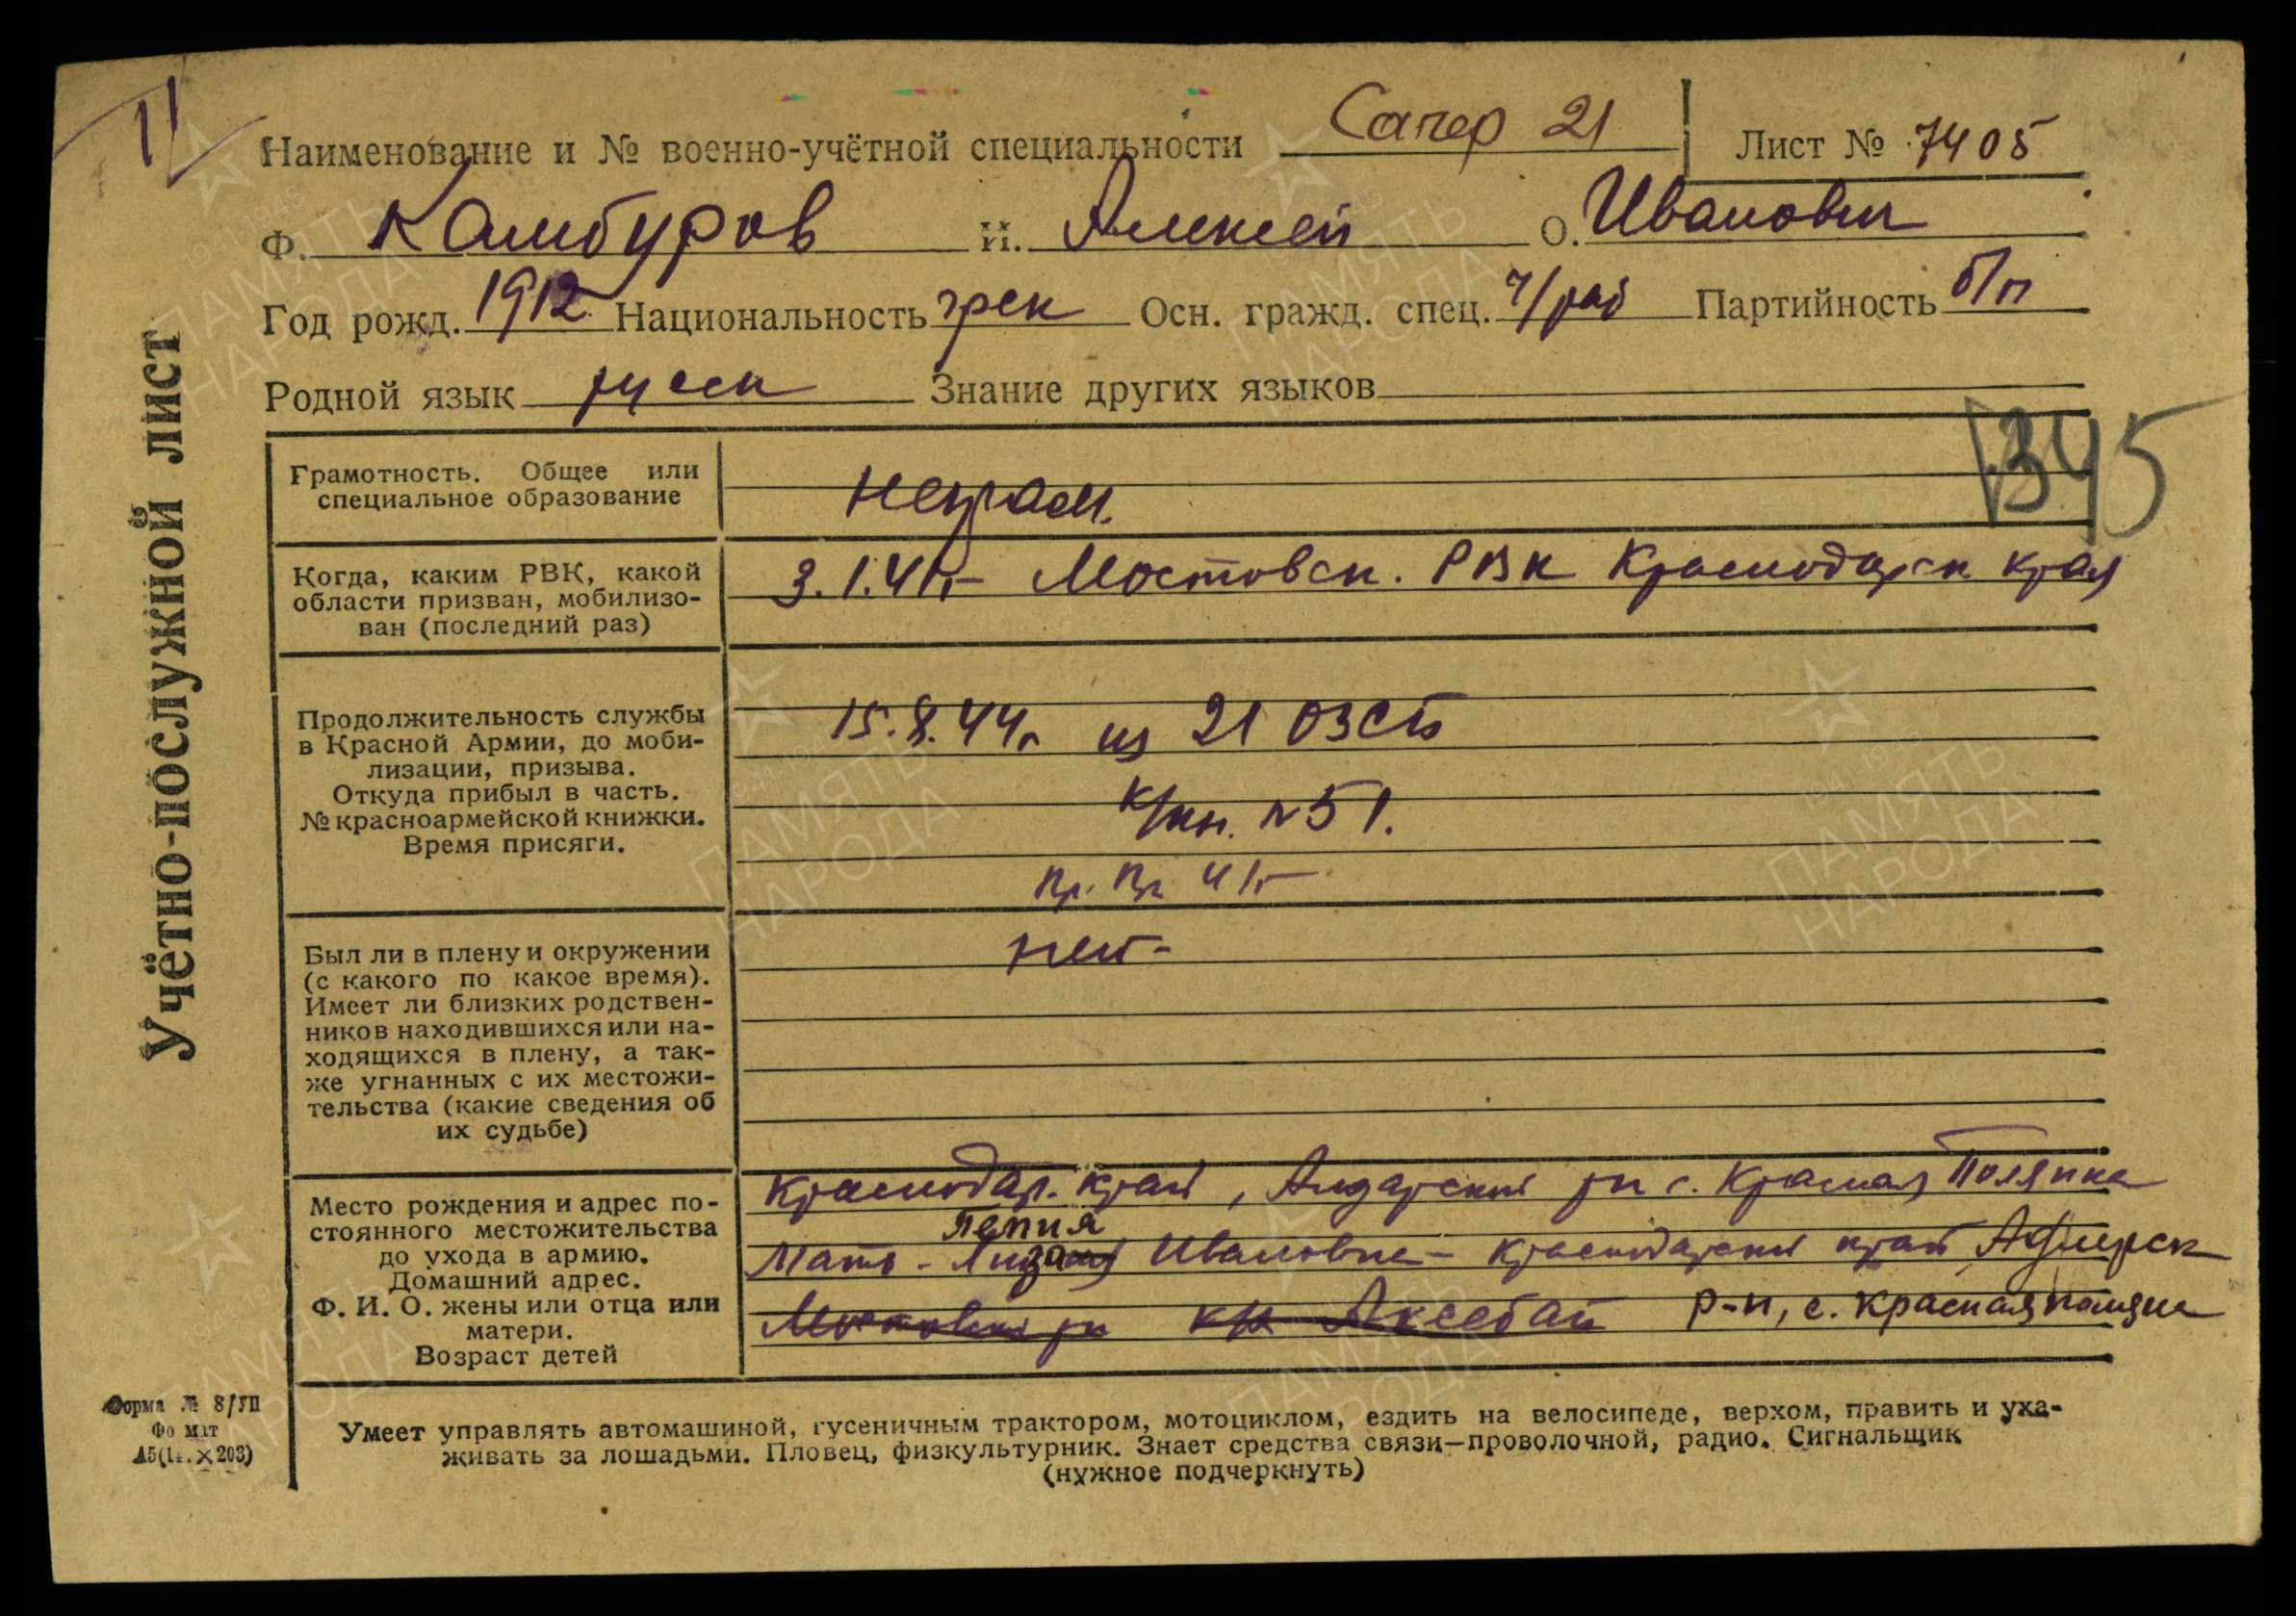 Наименование и № военно-учётной специальности Сапер 21 Лист № 7405
Ф. Камбуров И. Алексей О. Иванович
Год рожд. 1912 Национальность грек Осн. гражд. спец. ч/раб Партийность б/п
Родной язык русск Знание других языков
345
Учётно-послужной лист
Грамотность. Общее или
специальное образование
неграм.
Когда, каким РВК, какой
области призван, мобилизо-
ван (последний раз)
3.1.41г Мостовск. РВК Краснодарск края
Продолжительность службы
в Красной Армии, до моби-
лизации, призыва.
Откуда прибыл в часть.
№ красноармейской книжки.
Время присяги.
15.8.44г из 21 ОЗСП
к/кн. №51.
Пр. Пр 41г
Был ли в плену и окружении
(с какого по какое время).
Имеет ли близких родствен-
ников находившихся или на-
ходящихся в плену, а так-
же угнанных с их местожи-
тельства (какие сведения об
их судьбе)
нет-
Место рождения и адрес по-
стоянного местожительства
до ухода в армию.
Домашний адрес.
Ф. И. О. жены или отца или
матери.
Возраст детей
Краснодар. край, рн с. Красная Поляна
Мать - Ивановна - Краснодарский край
Мостовский рн Р-н, с. Красная поляна
Форма № 8/УП
Фо мат
А5(1 . × 203)
Умеет управлять автомашиной, гусеничным трактором, мотоциклом, ездить на велосипеде, верхом, править и уха-
живать за лошадьми. Пловец, физкультурник. Знает средства связи—проволочной, радио. Сигнальщик
(нужное подчеркнуть)
ПАМЯТЬ
НАРОДА